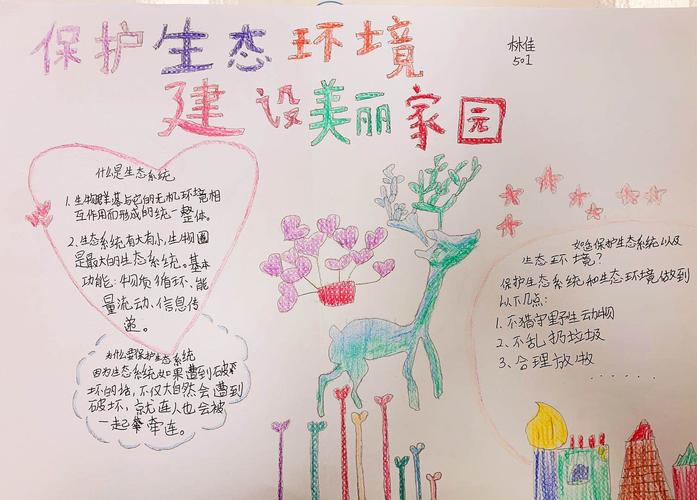 保护生态环境
建设美丽家园
林佳
501
什么是生态系统
1.生物群落与它的无机环境相
互作用而形成的统一整体。
2.生态系统有大有小,生物圈
是最大的生态系统。基本
功能:物质循环、能
量流动、信息传
递。
为什么要保护生态系统
因为生态系统如果遭到破
坏的话,不仅大自然会遭到
破坏,就连人也会被
一起牵连。
如何保护生态系统以及
生态环境?
保护生态系统和生态环境做到
以下几点:
1、不猎守野生动物
2、不乱扔垃圾
3、合理放牧
......